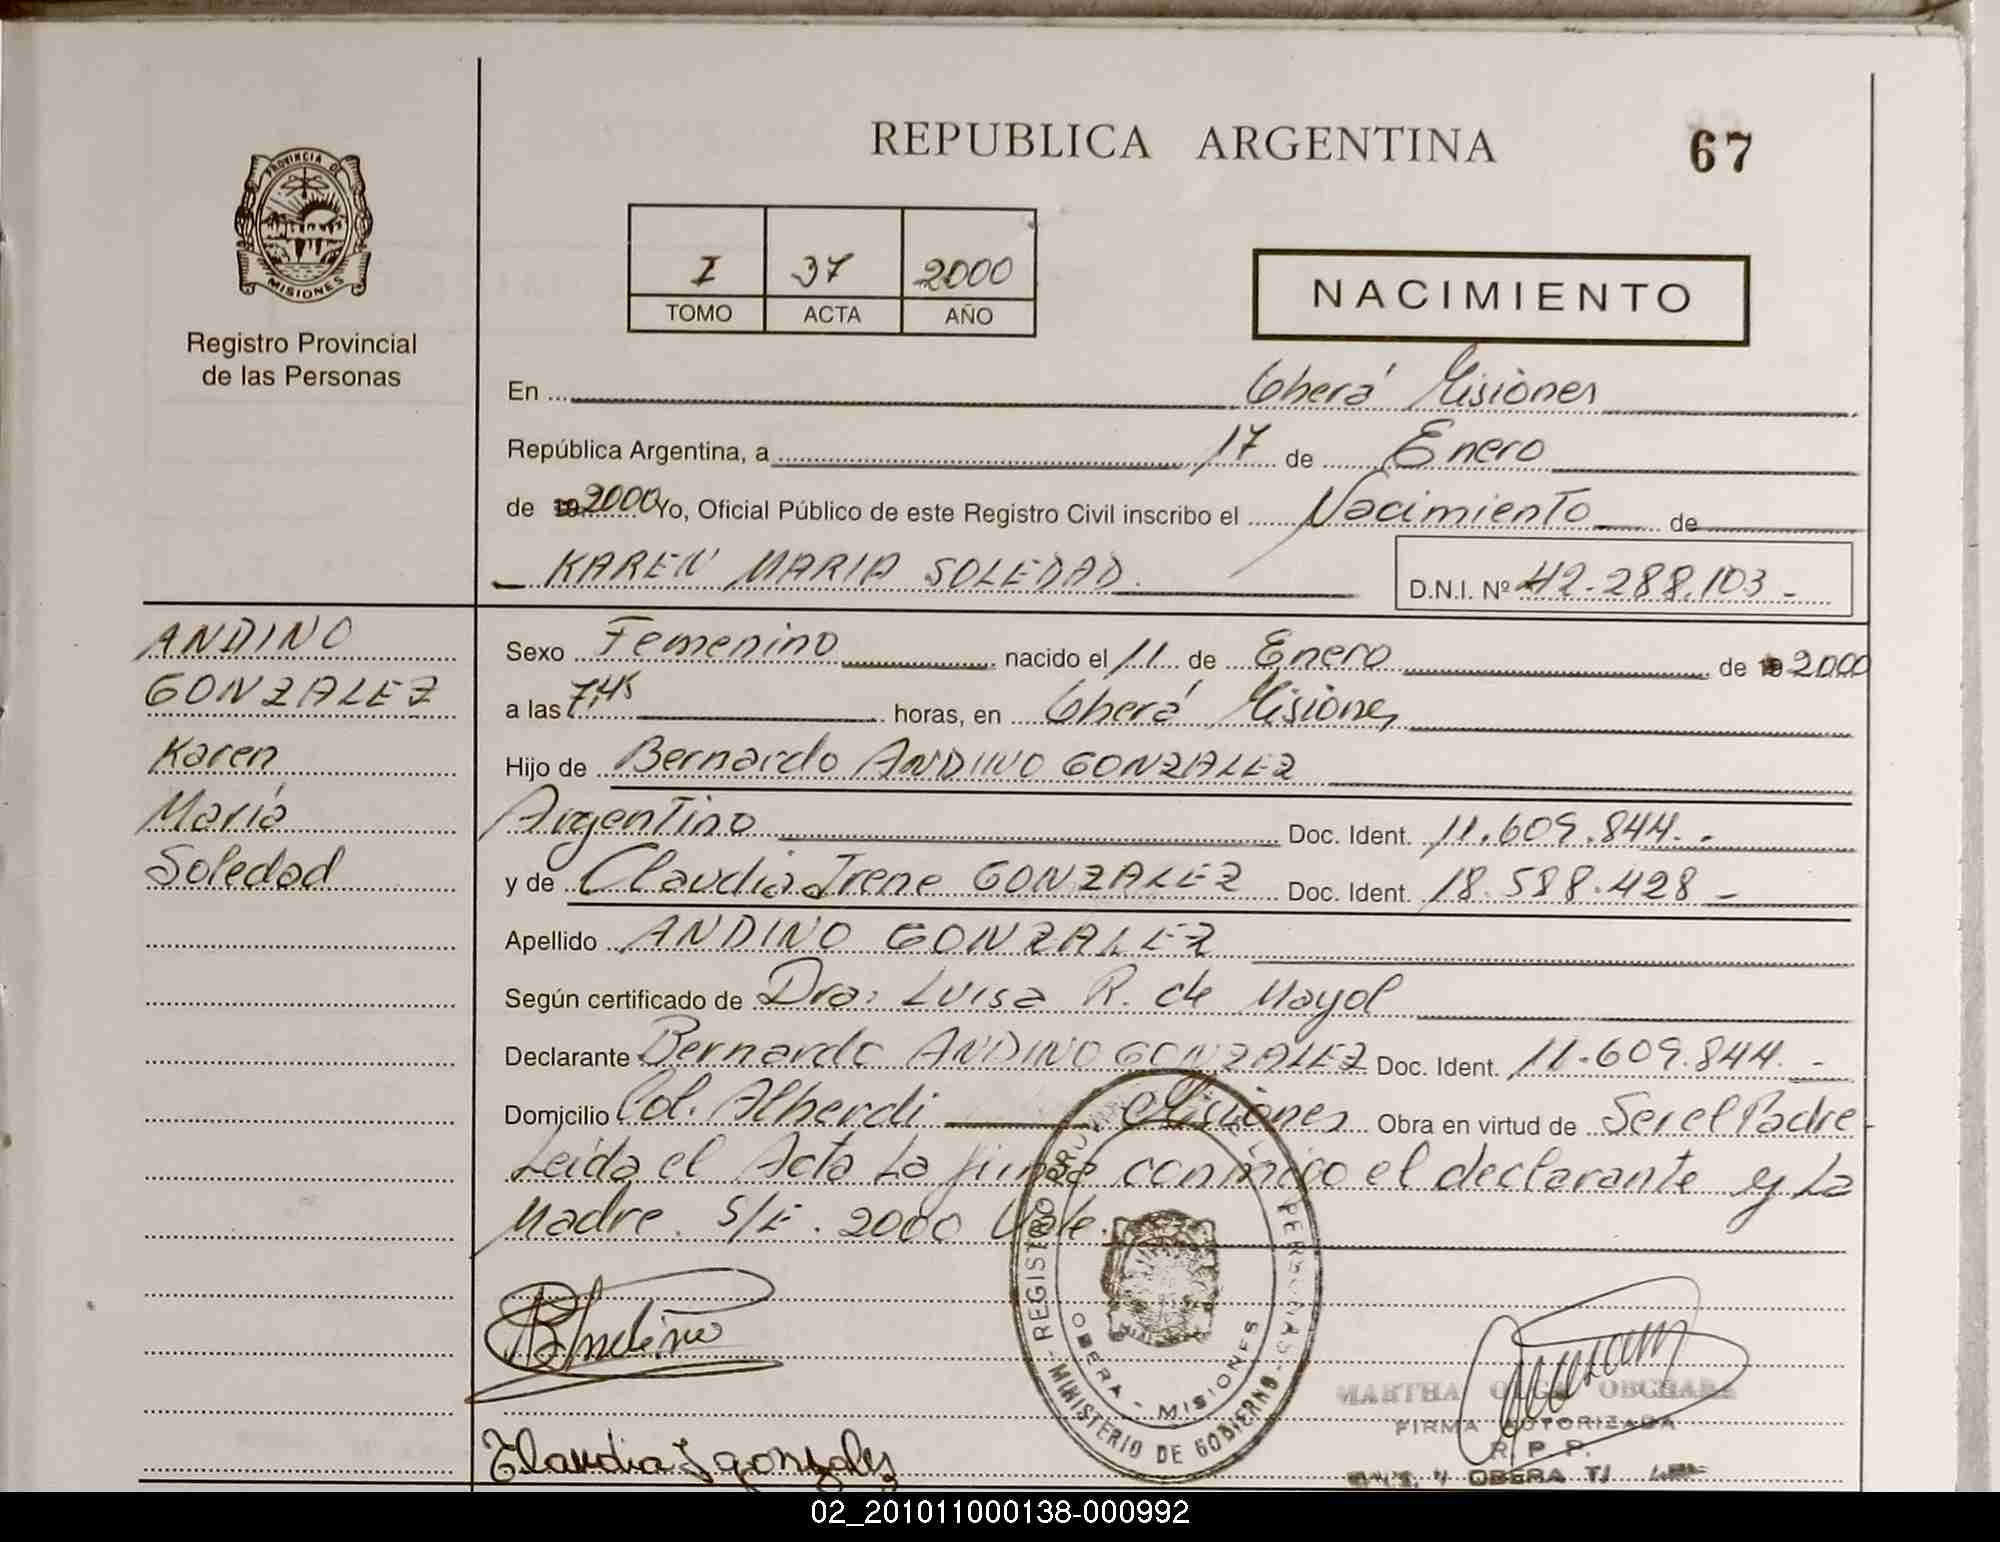 REPUBLICA ARGENTINA
67
PROVINCIA DE
MISIONES
Registro Provincial
de las Personas
I 37 2000
TOMO ACTA AÑO
NACIMIENTO
En ... Oberá Misiones
República Argentina, a 17 de Enero
de 2000 Yo, Oficial Público de este Registro Civil inscribo el Nacimiento de
KAREN MARIA SOLEDAD
D.N.I. Nº 42.288.103 -
ANDINO
GONZALEZ
Karen
María
Soledad
Sexo Femenino nacido el 11 de Enero de 2000
a las 7,45 horas, en Oberá Misiones
Hijo de Bernardo ANDINO GONZALEZ
Argentino Doc. Ident. 11.609.844. -
y de Claudia Irene GONZALEZ Doc. Ident. 18.588.428 -
Apellido ANDINO GONZALEZ
Según certificado de Dra: Luisa R. de Mayol
Declarante Bernardo ANDINO GONZALEZ Doc. Ident. 11.609.844. -
Domicilio Col. Alberdi Misiones Obra en virtud de Ser el Padre
Leída el Acta la firma conmigo el declarante y la
Madre. S/E. 2000 Vale.
BAndino
Claudia I gonzalez
REGISTRO PERSONAS - MINISTERIO DE GOBIERNO
OBERA - MISIONES
MARTHA OLGA
FIRMA AUTORIZADA
R. P. P.
OBERA
02_201011000138-000992